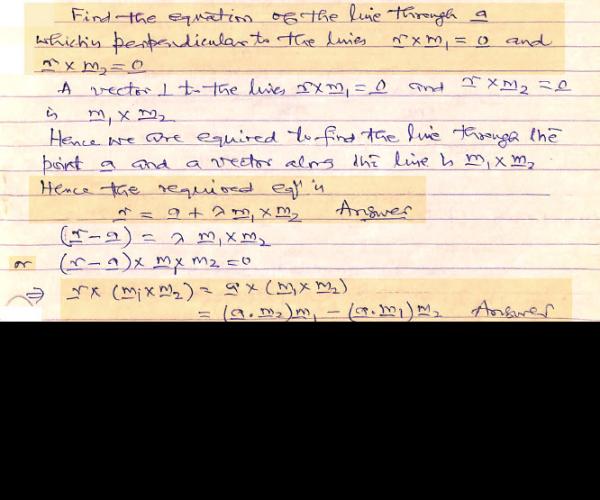 Find the equation of the line through a
which is perpendicular to the lines r × m₁ = 0 and
r × m₂ = 0
A vector ⊥ to the lines r × m₁ = 0 and r × m₂ = 0
is m₁ × m₂
Hence we are equired to find the line through the
point a and a vector along the line is m₁ × m₂
Hence the required eqⁿ is
r = a + λ m₁ × m₂ Answer
(r - a) = λ m₁ × m₂
or (r - a) × m₁ × m₂ = 0
⇒ r × (m₁ × m₂) = a × (m₁ × m₂)
= (a . m₂) m₁ - (a . m₁) m₂ Answer